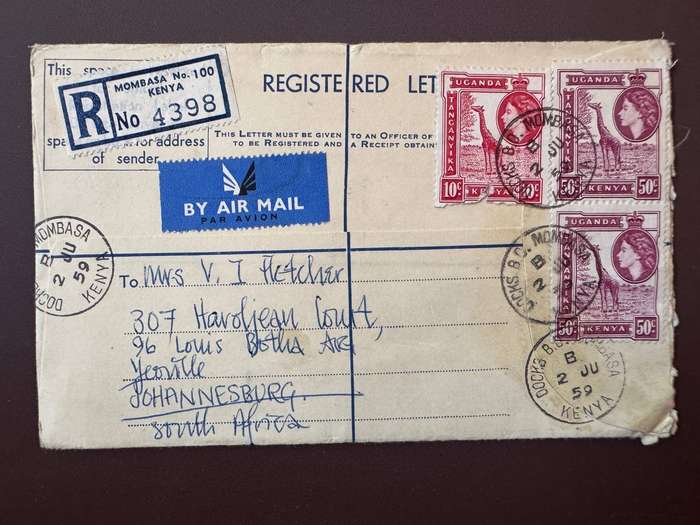 This spa
MOMBASA No. 100
KENYA
R No 4398
spa or address
of sender
REGISTERED LET
THIS LETTER MUST BE GIVEN TO AN OFFICER OF
TO BE REGISTERED AND A RECEIPT OBTAIN
BY AIR MAIL
PAR AVION
UGANDA
TANGANYIKA
10c KENYA 10c
UGANDA
TANGANYIKA
50c KENYA 50c
UGANDA
TANGANYIKA
50c KENYA 50c
DOCKS B.O. MOMBASA
B
2 JU
5
KENYA
DOCKS B.O. MOMBASA
B
2
KENYA
DOCKS B.O. MOMBASA
B
2 JU
59
KENYA
DOCK MOMBASA
B
2 JU
59
KENYA
To Mrs V. I Fletcher
307 Court,
96 Louis Botha Ave
Yeoville
JOHANNESBURG.
South Africa